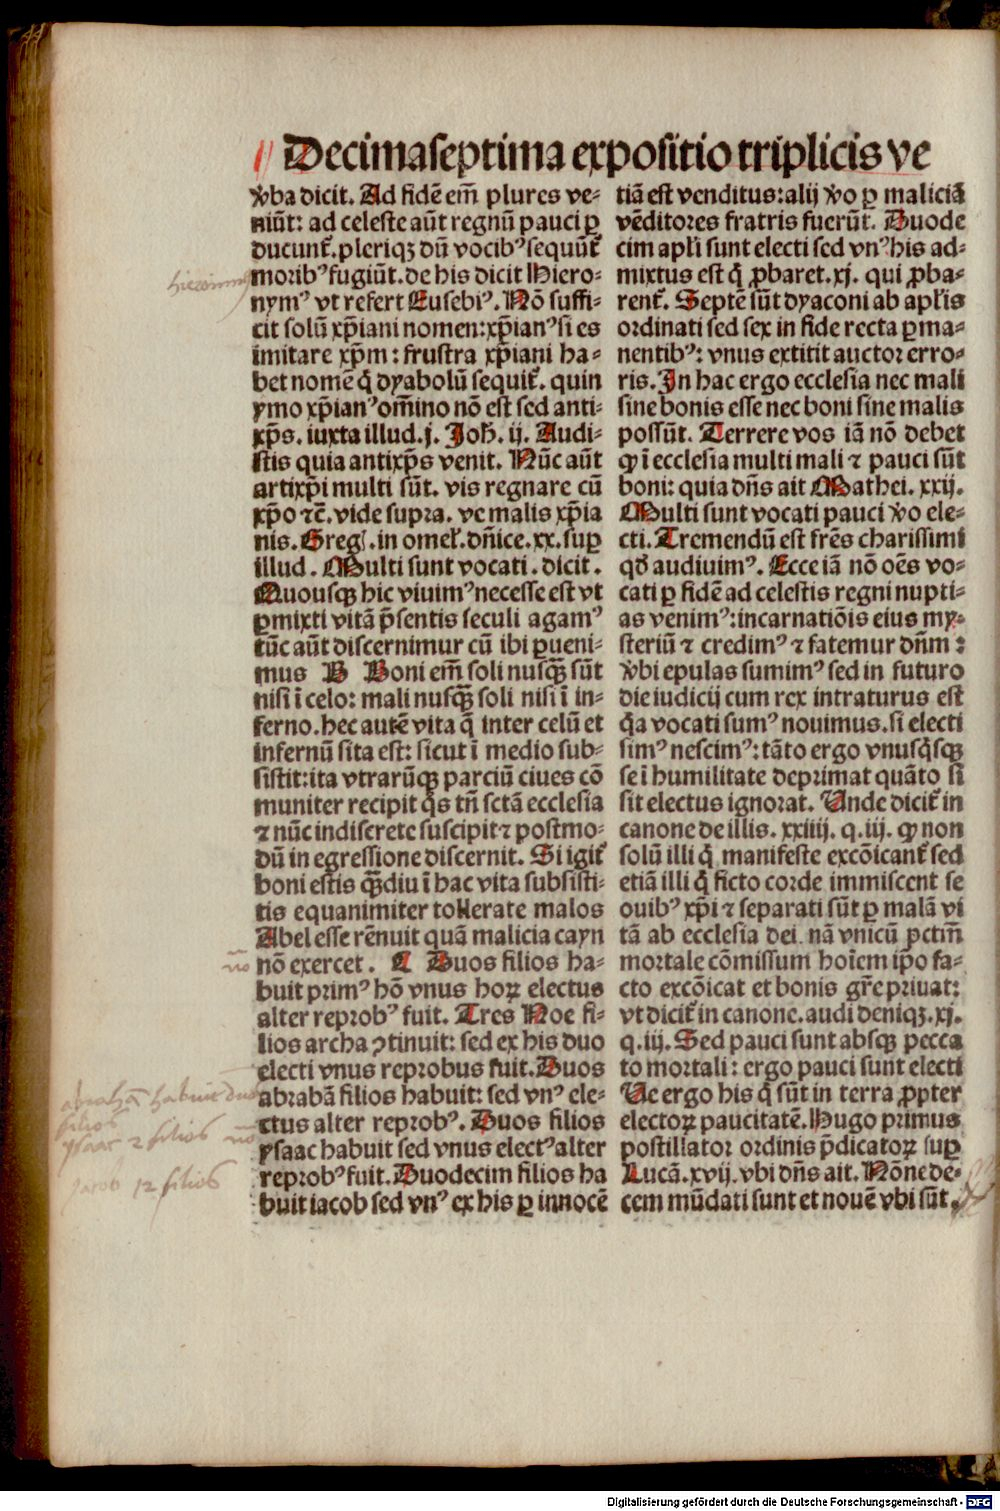 Decimaseptima expositio triplicis ve
v̄ba dicit. Ad fidē em̄ plures ve-
niūt: ad celeste aūt regnū pauci ꝑ
ducunt᷑. pleriqꝫ dū vocibꝰ sequūt᷑
moribꝰ fugiūt. de his dicit Hiero-
nymꝰ vt refert Eusebiꝰ. Nō suffi-
cit solū xp̄iani nomen: xp̄ianꝰ si es
imitare xp̄m: frustra xp̄iani ha-
bet nomē q̇ dyabolū sequit᷑. quin
ymo xp̄ianꝰ om̄ino nō est sed anti-
xp̄s. iuxta illud. j. Joħ. ij. Audi-
stis quia antixp̄s venit. Nūc aūt
artixp̄i multi sūt. vis regnare cū
xp̄o ⁊c̄. vide supra. ve malis xp̄ia
nis. Greg. in omeł. dn̄ice. xx. suꝑ
illud. Multi sunt vocati. dicit.
Quousqꝫ hic viuimꝰ necesse est vt
ꝑmixti vitā p̄sentis seculi agamꝰ
tūc aūt discernimur cū ibi ꝑueni-
mus B Boni em̄ soli nusqꝫ̄ sūt
nisi ī celo: mali nusqꝫ̄ soli nisi ī in-
ferno. hec autē vita q̄ inter celū et
infernū sita est: sicut ī medio sub-
sistit: ita vtrarūqꝫ parciū ciues cō
muniter recipit q̇s tn̄ sctā ecclesia
⁊ nūc indiscrete suscipit ⁊ postmo-
dū in egressione discernit. Si igit᷑
boni estis qꝫ̄diu ī hac vita subsisti-
tis equanimiter tollerate malos
Abel esse rēnuit quā malicia cayn
nō exercet. C Duos filios ha-
buit primꝰ hō vnus hoꝝ electus
alter reprobꝰ fuit. Tres Noe fi-
lios archa ꝯtinuit: sed ex his duo
electi vnus reprobus fuit. Duos
abrahā filios habuit: sed vnꝰ ele-
ctus alter reprobꝰ. Duos filios
ysaac habuit sed vnus electꝰ alter
reprobꝰ fuit. Duodecim filios ha
buit iacob sed vnꝰ ex his ꝑ innocē
tiā est venditus: alij v̄o ꝑ maliciā
vēditores fratris fuerūt. Duode
cim apl̄i sunt electi sed vnꝰ his ad-
mixtus est q̇ ꝓbaret. xj. qui ꝓba-
rent᷑. Septē sūt dyaconi ab apl̄is
ordinati sed sex in fide recta ꝑma-
nentibꝰ: vnus extitit auctor erro-
ris. In hac ergo ecclesia nec mali
sine bonis esse nec boni sine malis
possūt. Terrere vos iā nō debet
ꝙ ī ecclesia multi mali ⁊ pauci sūt
boni: quia dn̄s ait Mathei. xxij.
Multi sunt vocati pauci v̄o ele-
cti. Tremendū est fr̄es charissimi
qd̄ audiuimꝰ. Ecce iā nō oēs vo-
cati ꝑ fidē ad celestis regni nupti-
as venimꝰ: incarnatiōis eius my-
steriū ⁊ credimꝰ ⁊ fatemur dn̄m:
v̄bi epulas sumimꝰ sed in futuro
die iudicij cum rex intraturus est
q̇a vocati sumꝰ nouimus. si electi
simꝰ nescimꝰ: tāto ergo vnusq̇sqꝫ
se ī humilitate deprimat quāto si
sit electus ignorat. Unde dicit᷑ in
canone de illis. xxiiij. q. iij. ꝙ non
solū illi q̇ manifeste excōicant᷑ sed
etiā illi q̇ ficto corde immiscent se
ouibꝰ xp̄i ⁊ separati sūt ꝑ malā vi
tā ab ecclesia dei. nā vnicū pctm̄
mortale cōmissum hoīem ip̄o fa-
cto excōicat et bonis gr̄e priuat:
vt dicit᷑ in canone. audi deniqꝫ. xj.
q. iij. Sed pauci sunt absqꝫ pecca
to mortali: ergo pauci sunt electi
Ve ergo his q̇ sūt in terra ꝓpter
electoꝝ paucitatē. Hugo primus
postillator ordinis p̄dicatoꝝ suꝑ
Lucā. xvij. vbi dn̄s ait. Nōne de-
cem mūdati sunt et nouē vbi sūt.
hieronimꝰ
nō
abrahā habuit duos
filios
ysaac 2 filios nō
jacob 12 filios
Digitalisierung gefördert durch die Deutsche Forschungsgemeinschaft - DFG